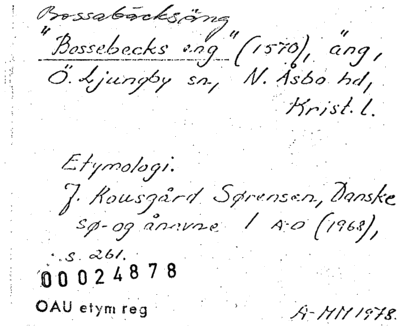 Bossabäcksäng
"Bossebecks eng" (1570), äng,
Ö. Ljungby sn, N. Åsbo hd,
Krist. l.
Etymologi.
J. Kousgård Sørensen, Danske
sø- og ånavne 1 A-D (1968),
s. 261.
00024878
OAU etym reg
A-MM 1978.